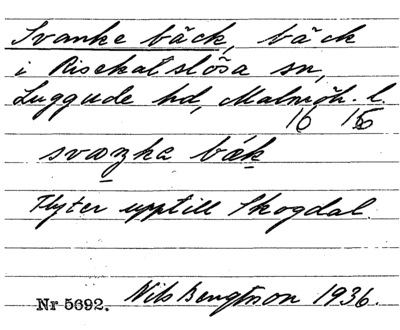 Svanke bäck, bäck
i Risekatslösa sn,
Luggude hd, Malmöh. l.
16 16
svaŋka bäk
Flyter upptill Skogdal.
Nr 5692. Nils Bengtson 1936.